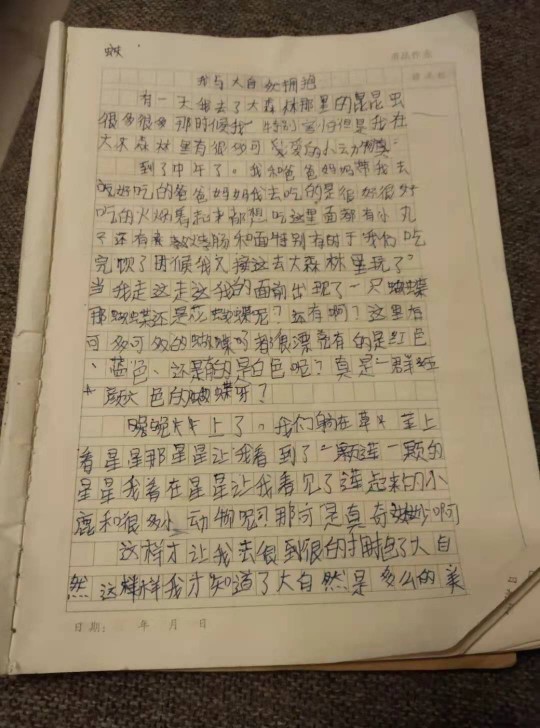 我与大自然拥抱
有一天我去了大森林那里的昆昆虫
很多很多那时候我特别害怕但是我在
大森林里有很多可爱的小动物
到了中午了。我和爸爸妈妈带我去
吃好吃的爸爸妈妈我去吃的是很好很好
吃的火锅看起来都想吃这里面都有小丸
子还有肠和面特别有时于我们吃
完饭了时候我又接这去大森林里玩了
当我走这走这我的面前出现了一只蝴蝶
那蝴蝶还是花蝴蝶呢？还有啊？这里有
可多可多的蝴蝶吗都很漂亮有的是红色
、蓝色、还是有的是白色呢？真是一群五
颜六色的蝴蝶呀？
晚上了。我们躺在草坪上
看星星那星星让我看到了一颗连一颗的
星星我看在星星让我看见了连起来的小
鹿和很多小动物呢可那可是真奇妙啊
这样才让我去很到很的拥抱了大自
然这样样我才知道了大自然是多么的美
日期： 年 月 日